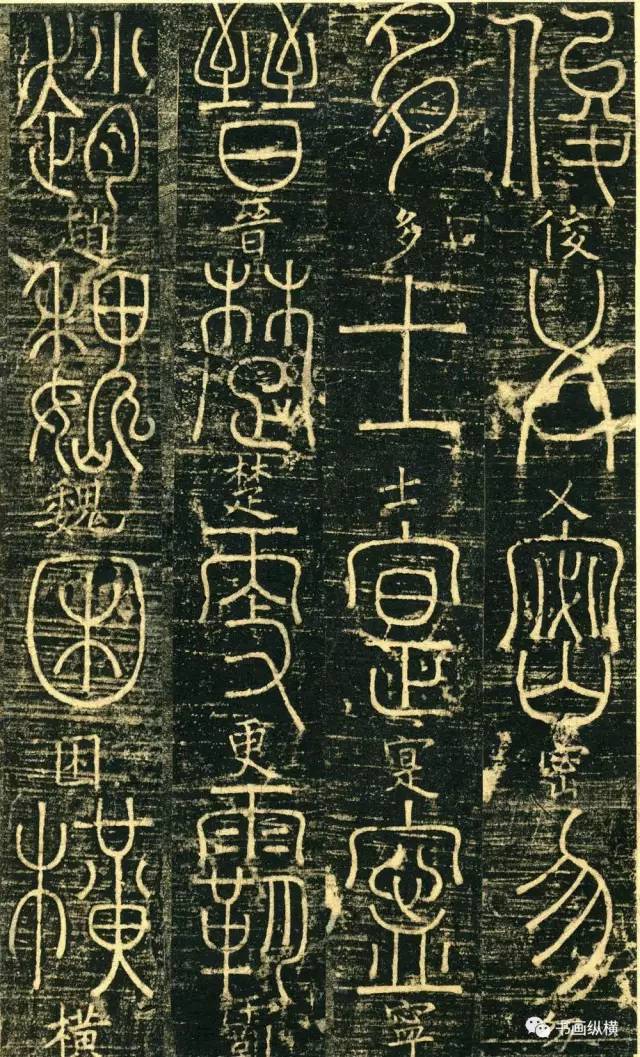 俊俊乂乂密密勿
多多士士寔寔寧寧
晉晉楚楚更更霸
趙趙魏魏困困橫橫
书画纵横